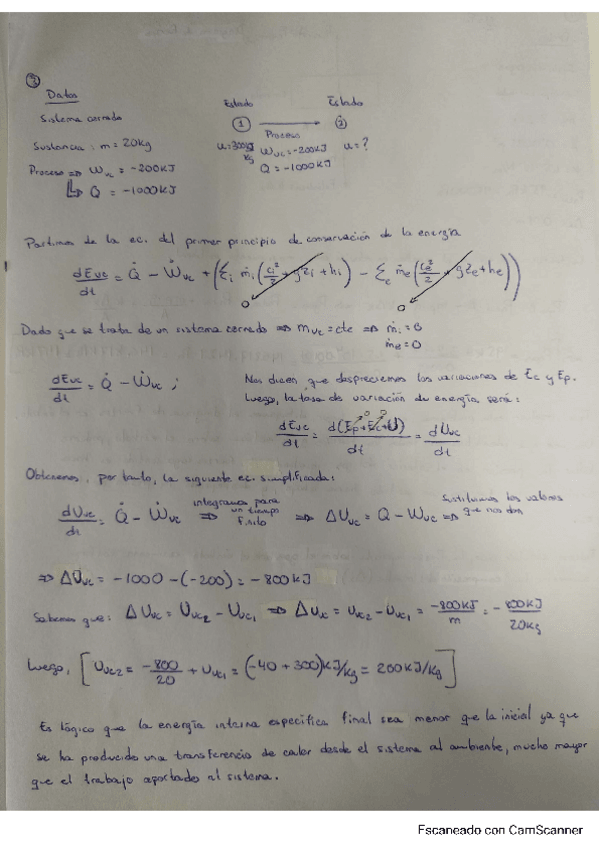 ③
Datos
Sistema cerrado
Sustancia: m = 20kg
Proceso ⇒ Wvc = -200KJ
↳ Q = -1000KJ
Estado Estado
① → ②
Proceso
u=300KJ/kg Wvc=-200KJ u=?
Q=-1000KJ
Partimos de la ec. del primer principio de conservación de la energía
dEvc/dt = Q̇ - Ẇvc + (Σi ṁi(ci²/2 + gzi + hi) - Σe ṁe(ce²/2 + gze + he))
0 0
Dado que se trata de un sistema cerrado ⇒ mvc = cte ⇒ ṁi = 0
ṁe = 0
dEvc/dt = Q̇ - Ẇvc ; Nos dicen que despreciemos las variaciones de Ec y Ep.
Luego, la tasa de variación de energía será:
dEvc/dt = d(Ep+Ec+U)/dt = dUvc/dt
Obtenemos, por tanto, la siguiente ec. simplificada:
dUvc/dt = Q̇ - Ẇvc integramos para un tiempo finito ⇒ ⇒ ΔUvc = Q - Wvc ⇒ Sustituimos los valores que nos dan
⇒ ΔUvc = -1000 - (-200) = -800KJ
Sabemos que: ΔUvc = Uvc2 - Uvc1 ⇒ Δuvc = uvc2 - uvc1 = -800KJ/m = -800KJ/20kg
Luego, [uvc2 = -800/20 + uvc1 = (-40 + 300)KJ/kg = 260KJ/kg]
Es lógico que la energía interna específica final sea menor que la inicial ya que
se ha producido una transferencia de calor desde el sistema al ambiente, mucho mayor
que el trabajo aportado al sistema.
Escaneado con CamScanner